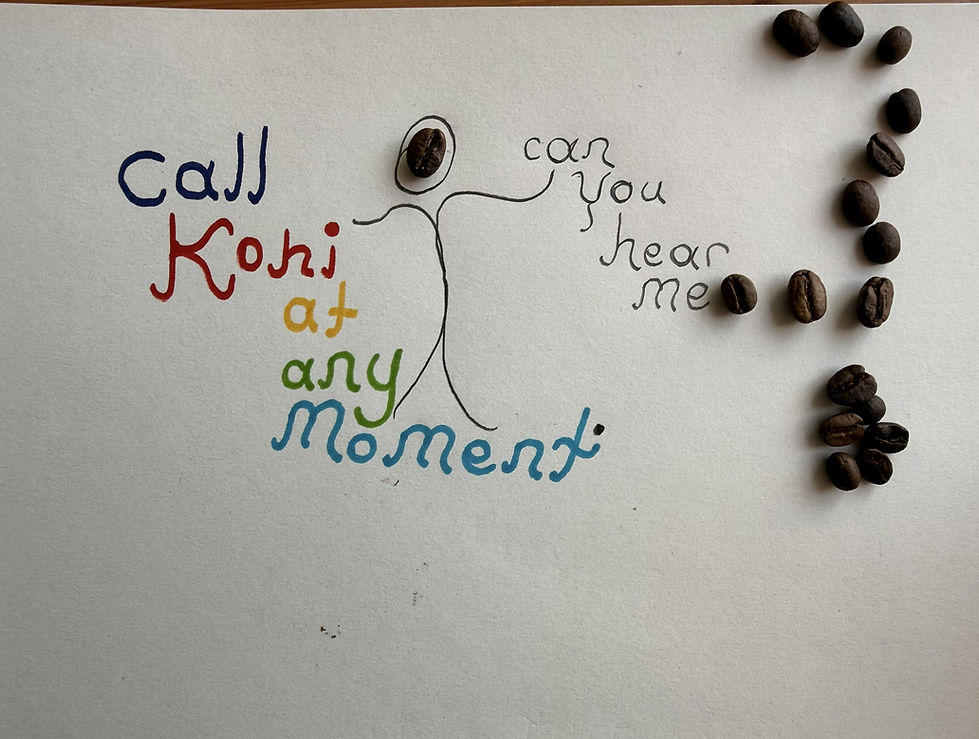 Call
Kohi
at
any
Moment.
can
you
hear
me
?